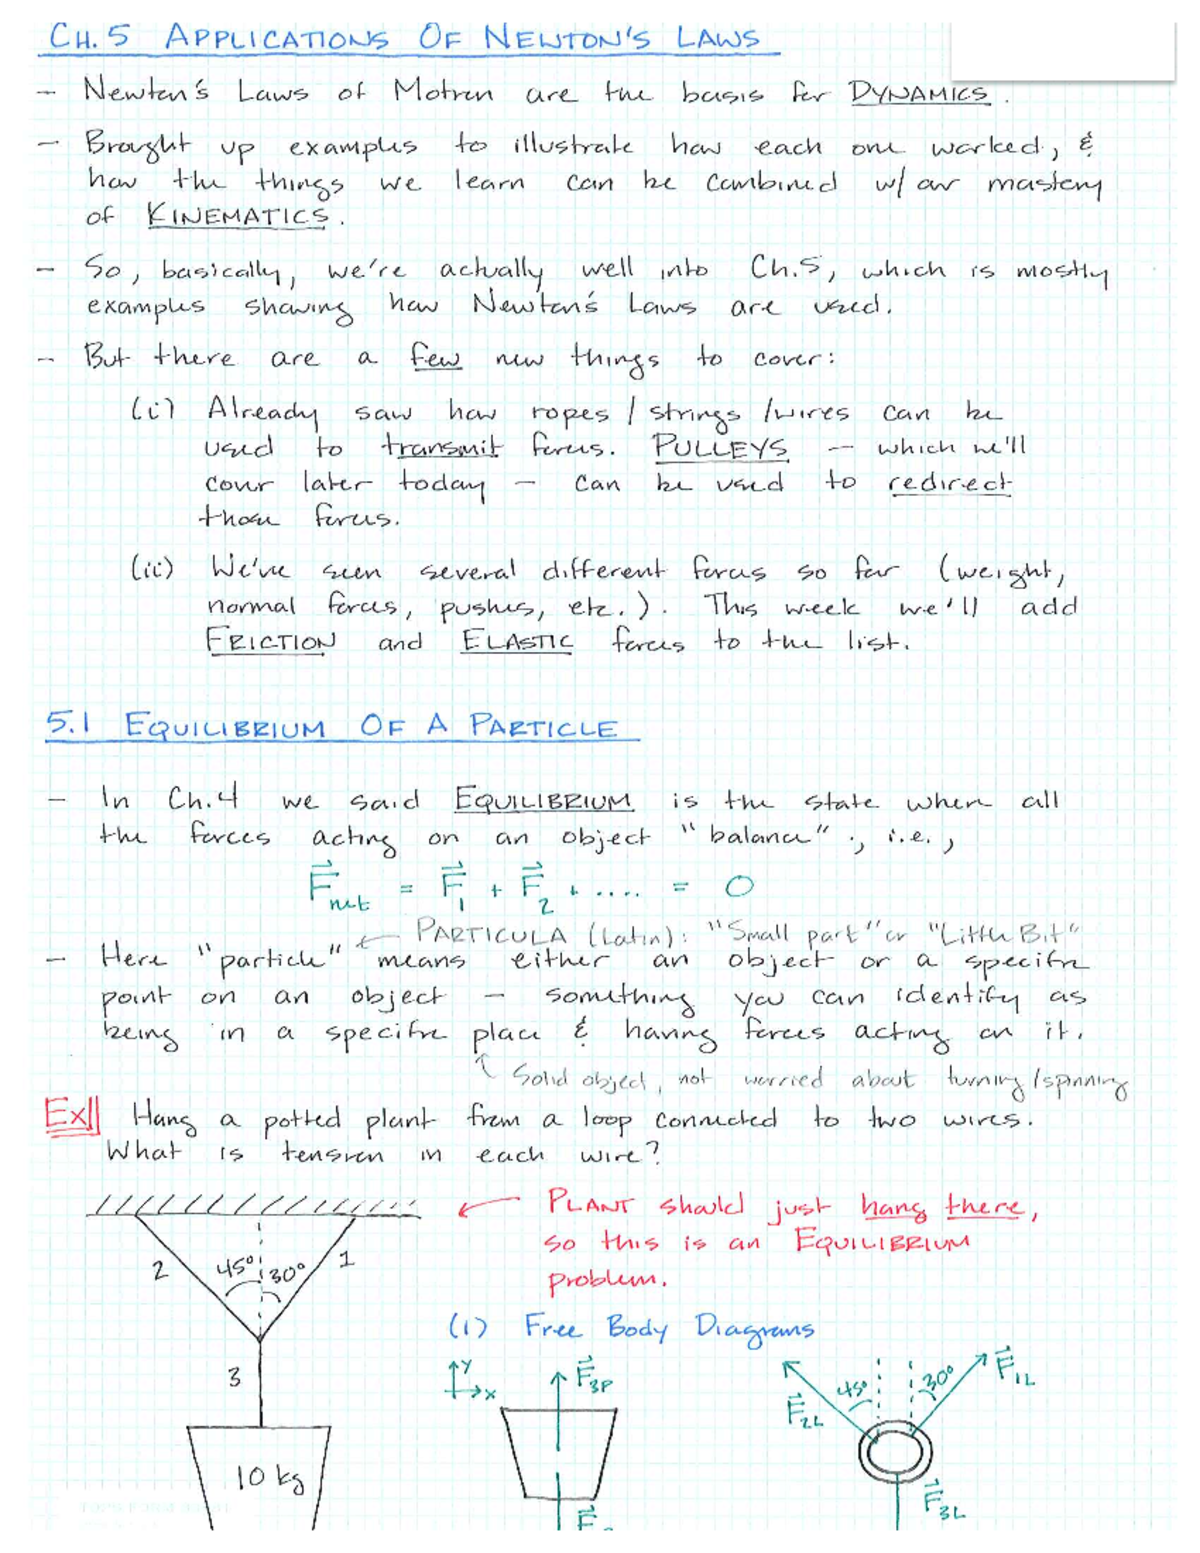 CH. 5 APPLICATIONS OF NEWTON'S LAWS
- Newton's Laws of Motion are the basis for DYNAMICS.
- Brought up examples to illustrate how each one worked, &
how the things we learn can be combined w/ our mastery
of KINEMATICS.
- So, basically, we're actually well into Ch.5, which is mostly
examples showing how Newton's Laws are used.
- But there are a few new things to cover:
(i) Already saw how ropes / strings / wires can be
used to transmit forces. PULLEYS - which we'll
cover later today - can be used to redirect
those forces.
(ii) We've seen several different forces so far (weight,
normal forces, pushes, etc.). This week we'll add
FRICTION and ELASTIC forces to the list.
5.1 EQUILIBRIUM OF A PARTICLE
- In Ch.4 we said EQUILIBRIUM is the state when all
the forces acting on an object "balance"; i.e.,
F⃗net = F⃗1 + F⃗2 + .... = 0
← PARTICULA (Latin): "Small part" or "Little Bit"
- Here "particle" means either an object or a specific
point on an object - something you can identify as
being in a specific place & having forces acting on it.
↑ Solid object, not worried about turning/spinning
Ex|| Hang a potted plant from a loop connected to two wires.
What is tension in each wire?
← PLANT should just hang there,
so this is an EQUILIBRIUM
problem.
2 45° 30° 1
(1) Free Body Diagrams
3
y
x
F⃗3P
45° 30° F⃗1L
F⃗2L
10 kg
F⃗3L
F⃗